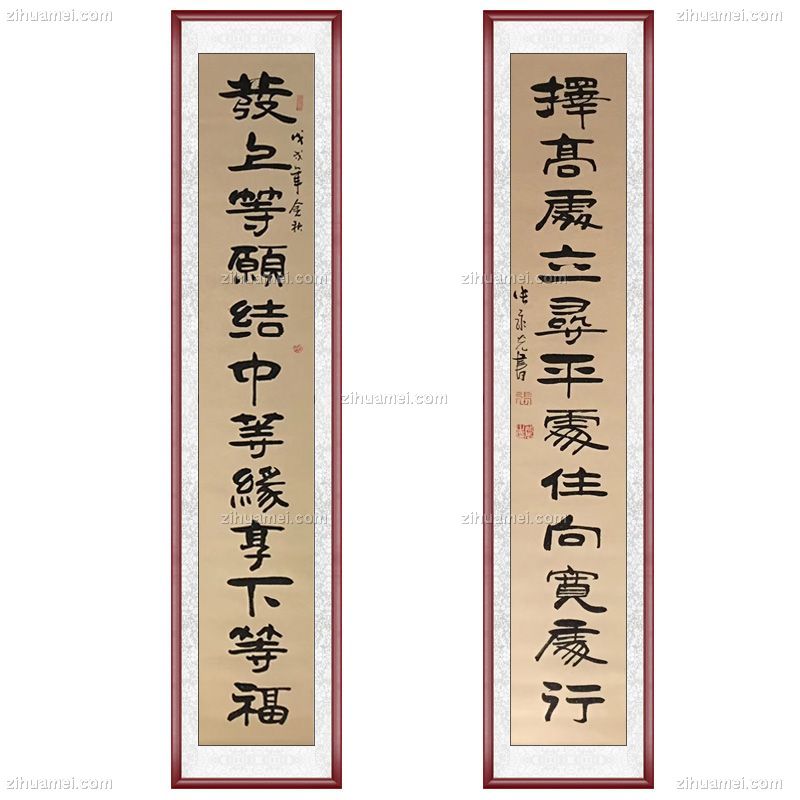 zihuamei.com
zihuamei.com
發上等願結中等緣享下等福
戊戌年金秋
擇高處立尋平處住向寬處行
書
zihuamei.com
zihuamei.com
zihuamei.com
zihuamei.com
zihuamei.com
zihuamei.com
zihuamei.com